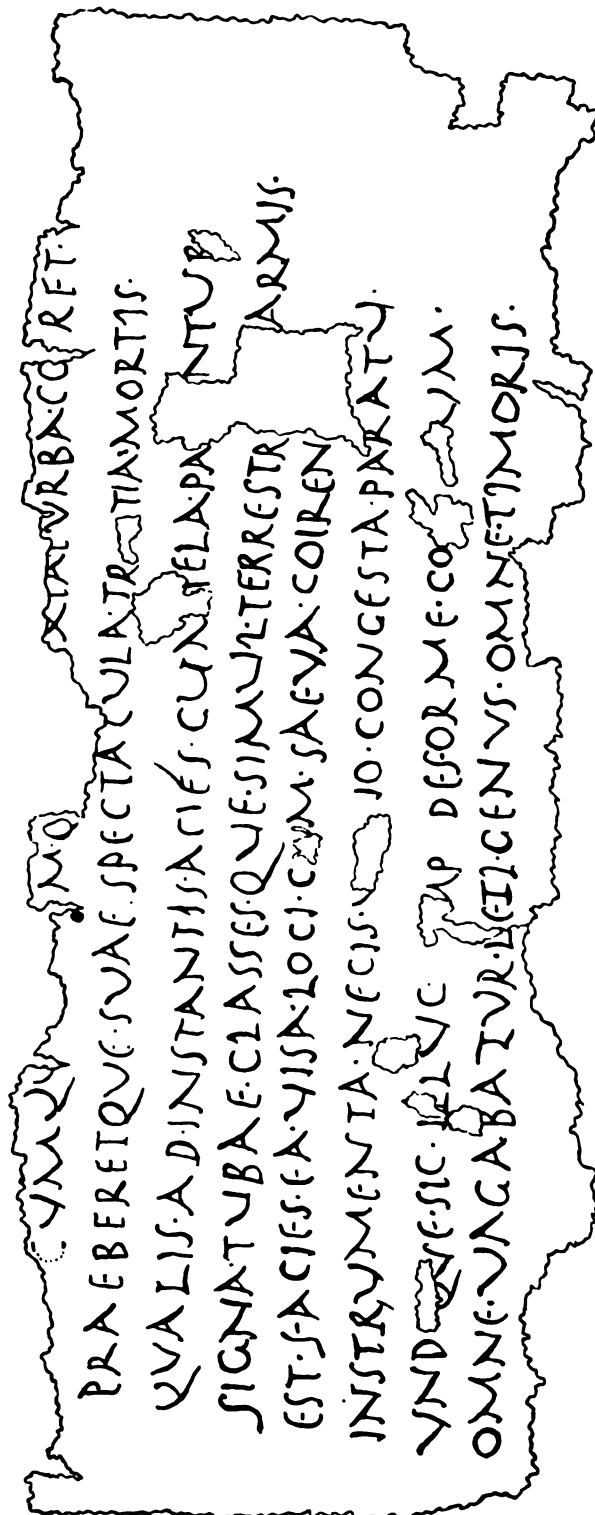 VMQV M·Q XIA·TVRBA·CO RET·
PRAEBERETQVE·SVAE·SPECTACULA·TR TIA·MORTIS·
QVALIS·AD·INSTANTIS·ACIÉS·CUM TELA·PA NTUR
SIGNA·TUBAE·CLASSESQUE·SIMUL·TERRESTR ARMIS·
EST·FACIES·EA·VISA·LOCI·C M·SAEVA·COIREN
INSTRVMENTA·NECIS·V IO·CONGESTA·PARATV·
VND QVE·SIC·ILLVC· AP DEFORME·CO VM·
OMNE·VAGABATUR·LETI·GENVS·OMNE·TIMORIS·